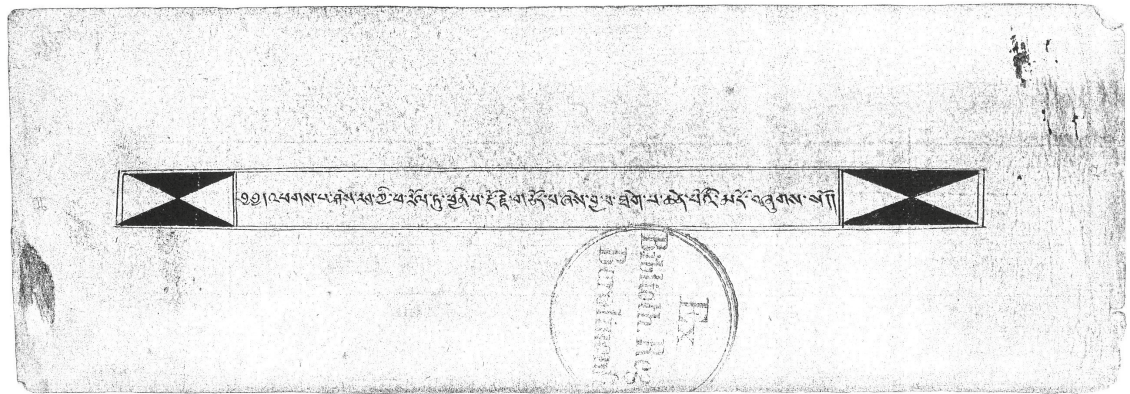 ༄༅།།འཕགས་པ་ཤེས་རབ་ཀྱི་ཕ་རོལ་ཏུ་ཕྱིན་པ་རྡོ་རྗེ་གཅོད་པ་ཞེས་བྱ་བ་ཐེག་པ་ཆེན་པོའི་མདོ་བཞུགས་སོ།།
Ex
Biblioth. Reg.
Berolinens